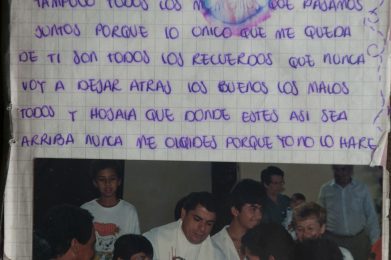 TAMPOCO TODOS LOS QUE PASAMOS
JUNTOS PORQUE LO UNICO QUE ME QUEDA
DE TI SON TODOS LOS RECUERDOS QUE NUNCA
VOY A DEJAR ATRAS LOS BUENOS LOS MALOS
TODOS Y HOJALA QUE DONDE ESTES ASI SEA
ARRIBA NUNCA ME OLVIDES PORQUE YO NO LO HARE